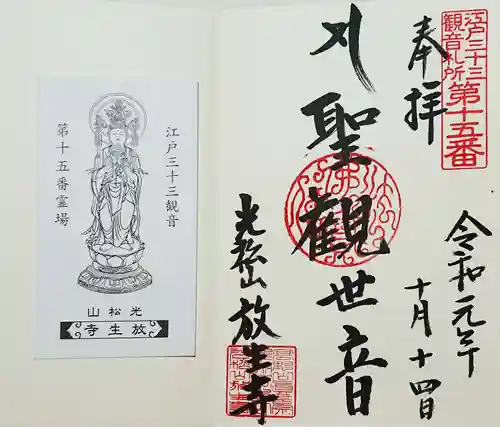 江戸三十三
観音札所
第十五番
奉拝
令和元年
十月十四日
聖觀世音
光松山 放生寺
江戸三十三観音
第十五番霊場
光松山
放生寺